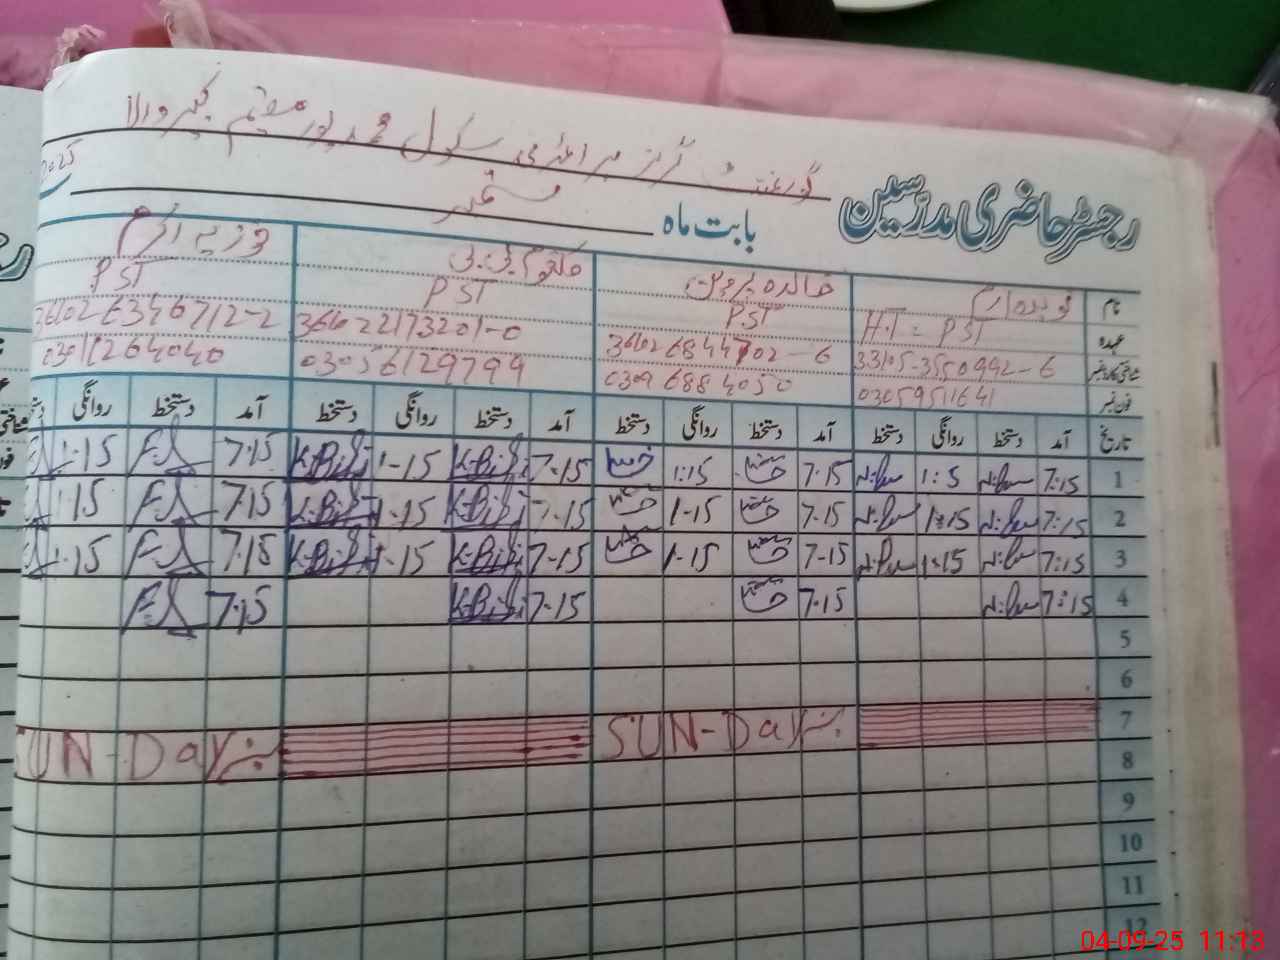 گورنمنٹ گرلز پرائمری سکول محمد پور مقیم کبیر والا
رجسٹر حاضری مدرسین
بابت ماہ ستمبر 2025
نام خالدہ پروین کلثوم بی بی
عہدہ H.T = PST PST PST PST
شناختی کارڈ نمبر 33105-3550992-6 366022173201-0
فون نمبر 03059511641 0309 6884050 03056129799 03011264040
تاریخ آمد دستخط روانگی دستخط آمد دستخط روانگی دستخط آمد دستخط روانگی دستخط آمد دستخط روانگی
1 7:15 1:5 7.15 1:15 7-15 K.Bibi 1-15 K.Bibi 7.15 1:15
2 7:15 1:15 7.15 1-15 7-15 K.Bibi 1.15 K.Bibi 7.15 1.15
3 7:15 1:15 7-15 1-15 7-15 K.Bibi 1.15 K.Bibi 7.15 1.15
4 7:15 7.15 7-15 K.Bibi 7.15
5
6
7 SUN-Day SUN-Day
8
9
10
11
12
04-09-25 11:13